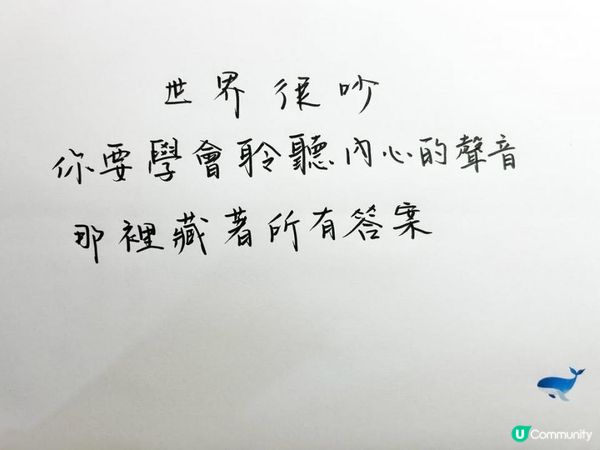 世界很吵
你要學會聆聽內心的聲音
那裡藏著所有答案
U Community